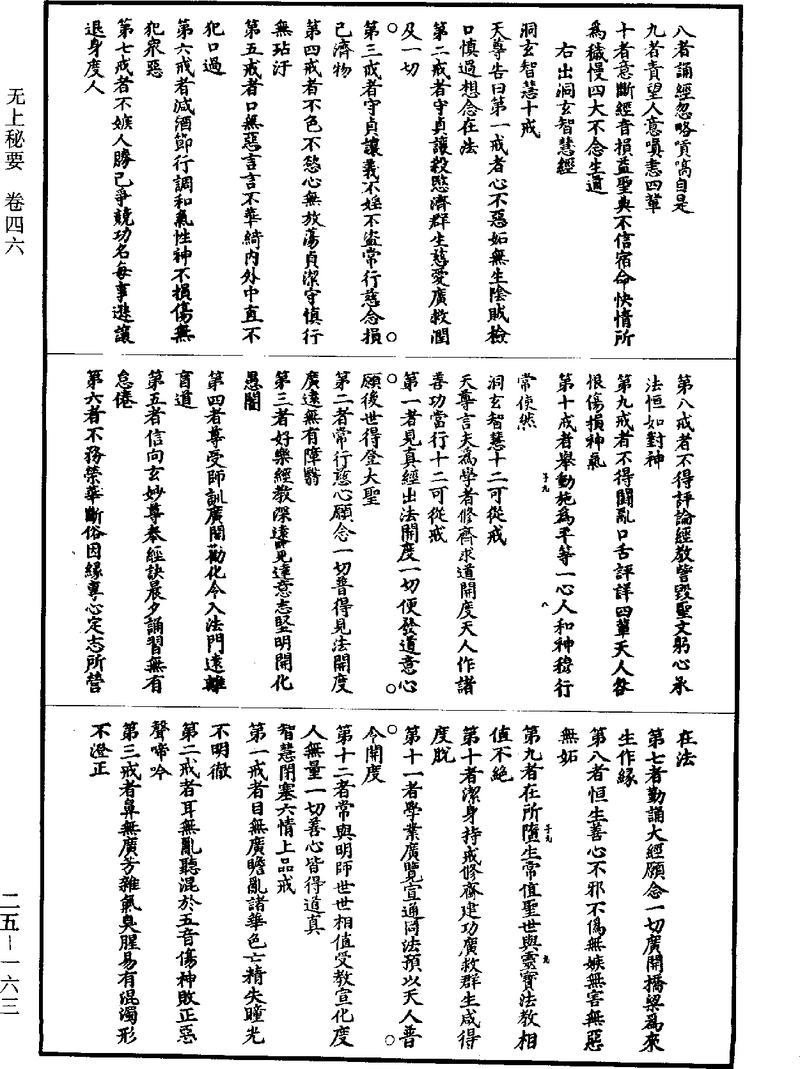 无上秘要 卷四六
八者誦經忽略嗊嗃自是
九者責望人意嗔恚四輩
十者意斷經音損益聖典不信宿命快情所
為穢慢四大不念生道
右出洞玄智慧經
洞玄智慧十戒
天尊告曰第一戒者心不惡妬無生陰賊檢
口慎過想念在法
第二戒者守貞讓殺愍濟群生慈愛廣救潤
及一切
第三戒者守貞讓義不婬不盜常行慈念損
己濟物
第四戒者不色不慾心無放蕩貞潔守慎行
無玷汙
第五戒者口無惡言言不華綺內外中直不
犯口過
第六戒者減酒節行調和氣性神不損傷無
犯眾惡
第七戒者不嫉人勝己爭競功名每事遜讓
退身度人
第八戒者不得評論經教訾毀聖文躬心承
法恒如對神
第九戒者不得鬪亂口舌評詳四輩天人咎
恨傷損神氣
第十戒者舉動施為平等一心人和神穆行
常使然
洞玄智慧十二可從戒
天尊言夫為學者修齋求道開度天人作諸
善功當行十二可從戒
第一者見真經出法開度一切便發道意心
願後世得登大聖
第二者常行慈心願念一切普得見法開度
廣遠無有障翳
第三者好樂經教深遠覽達意志堅明開化
愚闇
第四者尊受師訓廣開勸化令入法門遠離
盲道
第五者信向玄妙尊奉經訣晨夕誦習無有
怠倦
第六者不務榮華斷俗因緣專心定志所營
在法
第七者勤誦大經願念一切廣開橋梁為來
生作緣
第八者恒生善心不邪不偽無嫉無害無惡
無妬
第九者在所墮生常值聖世與靈寶法教相
值不絕
第十者潔身持戒修齋建功廣救群生咸得
度脫
第十一者學業廣覽宣通同法預以天人普
令開度
第十二者常與明師世世相值受教宣化度
人無量一切善心皆得道真
智慧閉塞六情上品戒
第一戒者目無廣瞻亂諸華色亡精失瞳光
不明徹
第二戒者耳無亂聽混於五音傷神敗正惡
聲啼吟
第三戒者鼻無廣芳雜氣臭腥易有混濁形
不澄正
二五－一六三